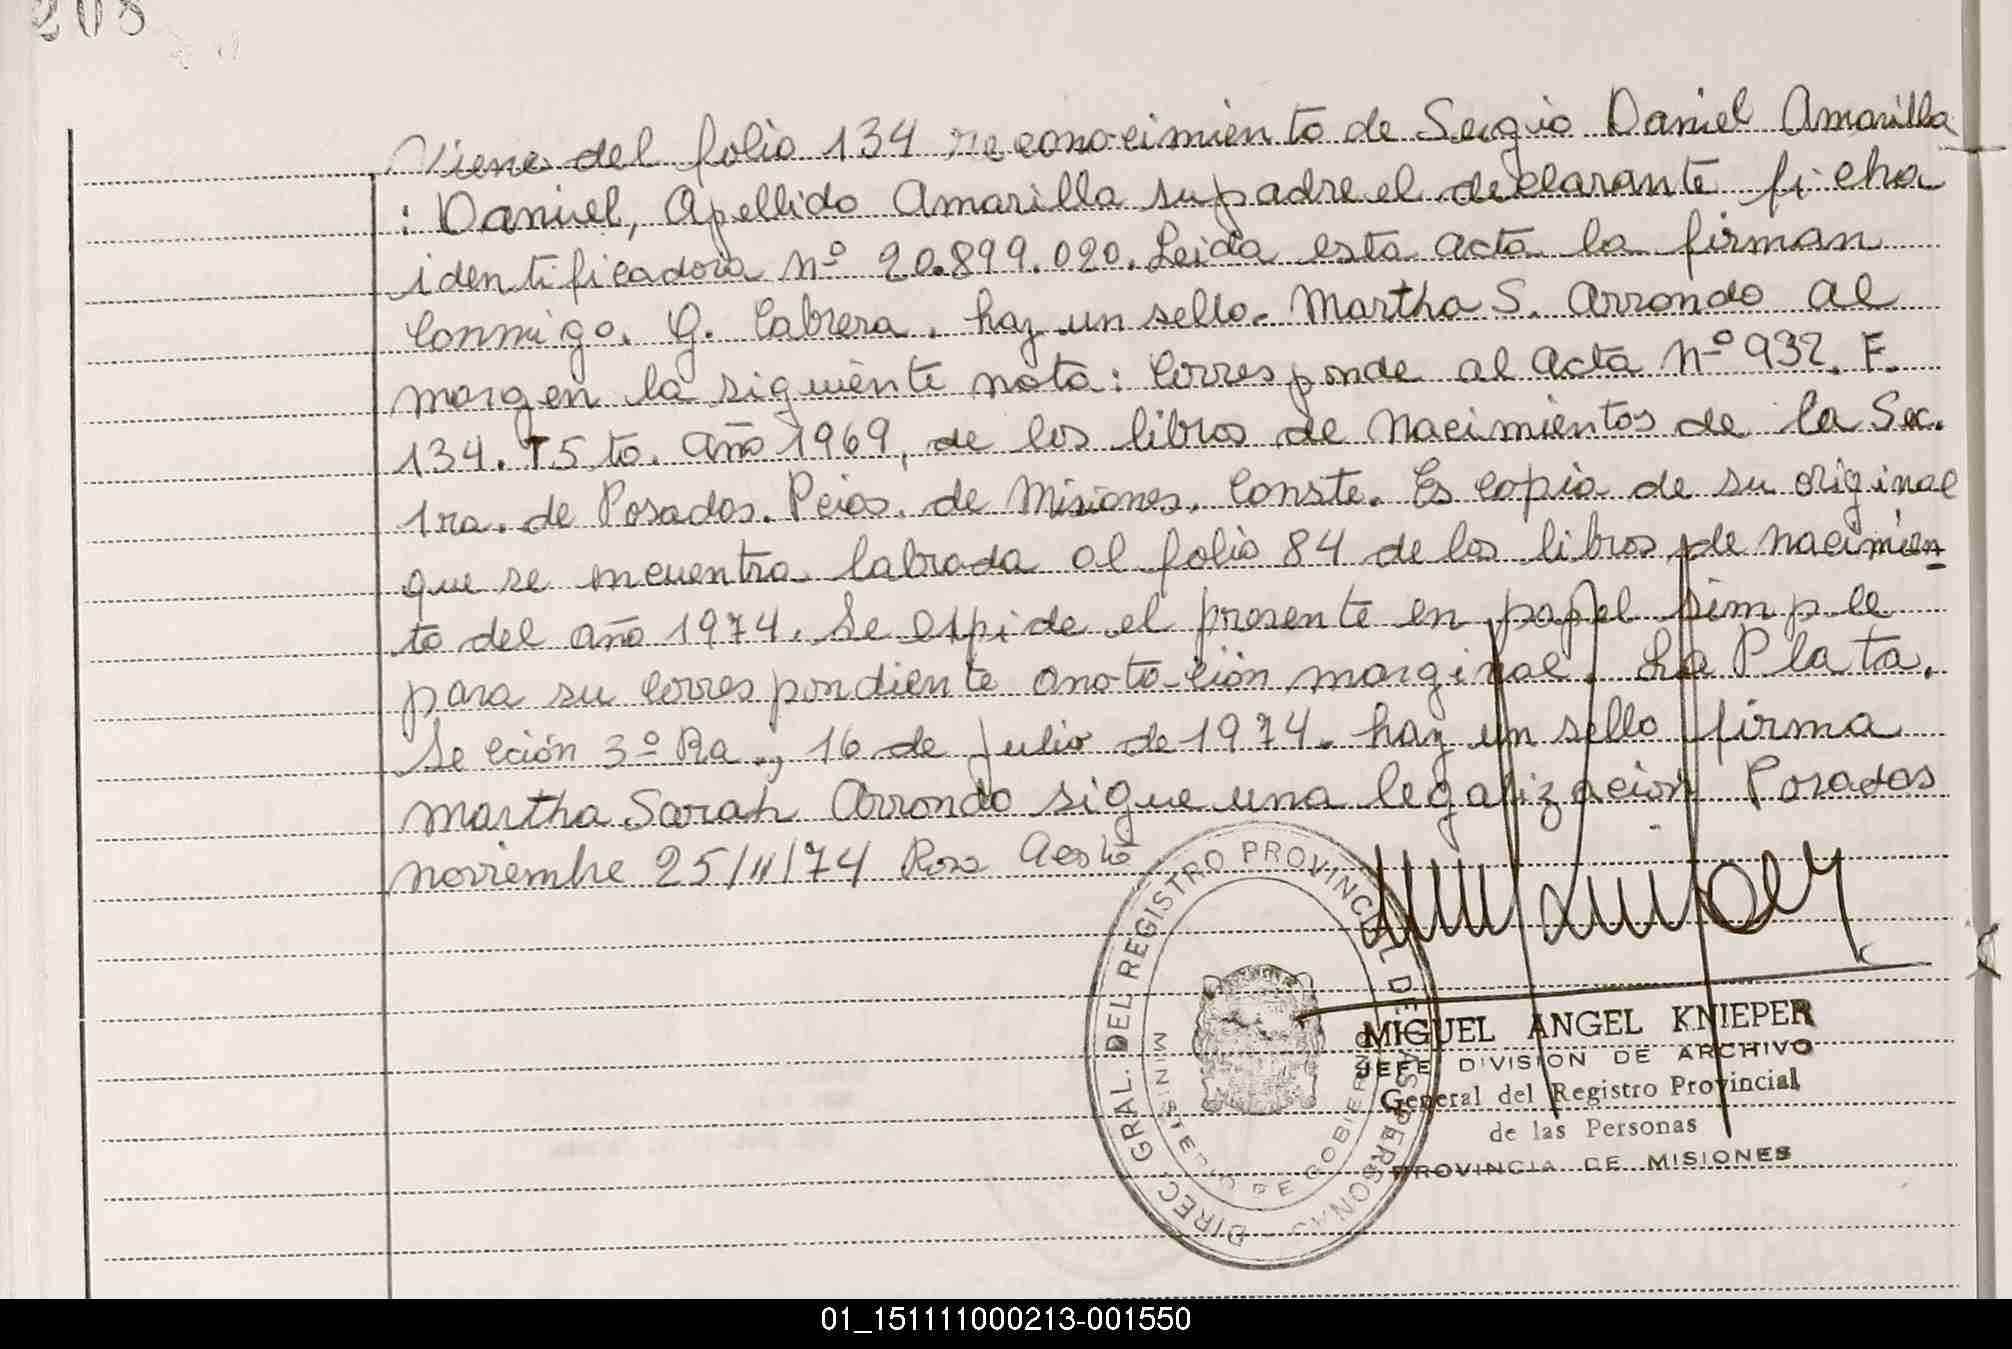 208
Viene del folio 134 reconocimiento de Sergio Daniel Amarilla
: Daniel, Apellido Amarilla su padre el declarante ficha
identificadora Nº 20.899.020. Leida esta acta la firman
Conmigo. G. Cabrera. hay un sello. Martha S. Arrondo al
margen la siguiente nota: Corresponde al acta Nº 932. F.
134. T 5 to. año 1969, de los libros de Nacimientos de la Sec.
1ra. de Posadas. Pcias. de Misiones. Conste. Es copia de su original
que se encuentra labrada al folio 84 de los libros de nacimien
to del año 1974. Se expide el presente en papel simple
para su correspondiente anotación marginal. La Plata.
Sección 3º Ra., 16 de Julio de 1974. hay un sello firma
Martha Sarah Arrondo sigue una legalización Posadas
noviembre 25/11/74 Rosa
DIREC. GRAL. DEL REGISTRO PROVINCIAL DE LAS PERSONAS
MINISTERIO DE GOBIERNO
MIGUEL ANGEL KNIEPER
JEFE DIVISION DE ARCHIVO
General del Registro Provincial
de las Personas
PROVINCIA DE MISIONES
01_151111000213-001550